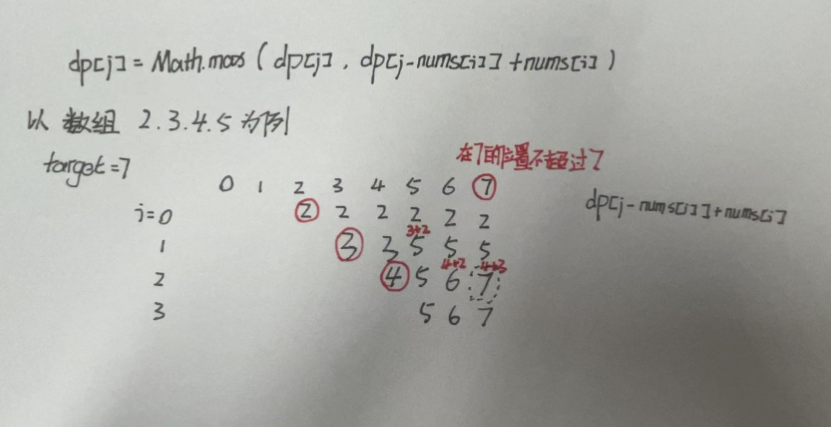 dp[j] = Math.max ( dp[j] , dp[j-nums[i]] +nums[i] )
以 数组 2.3.4.5 为列
target=7
在7的位置不超过7
0 1 2 3 4 5 6 7
dp[j-nums[i]]+nums[i]
i=0 2 2 2 2 2 2
3+2
1 3 3 5 5 5
4+2 4+3
2 4 5 6 7
3 5 6 7